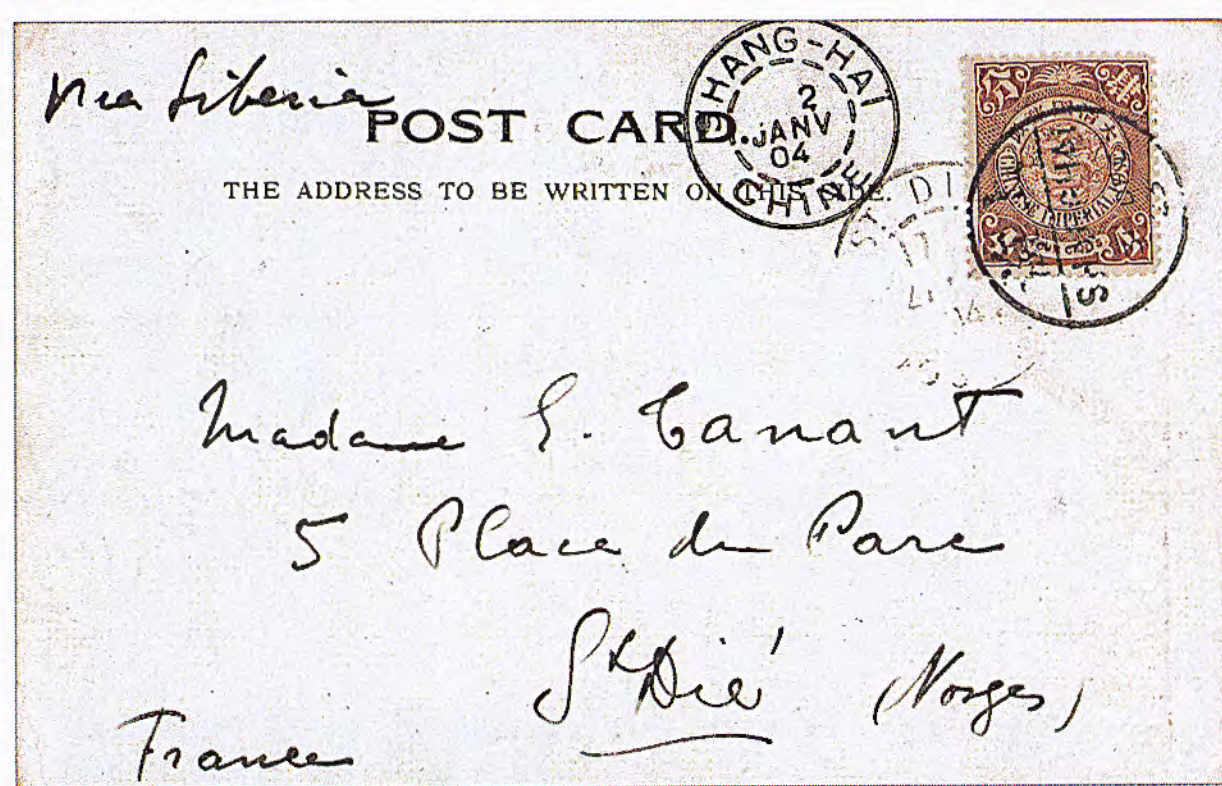 via Siberia
POST CARD.
THE ADDRESS TO BE WRITTEN ON THIS SIDE.
SHANG-HAI
2
JANV
04
CHINE
ST DI
CHINESE IMPERIAL POST
FOUR CENTS
Madame E. Tanant
5 Place du Parc
St Dié (Vosges)
France